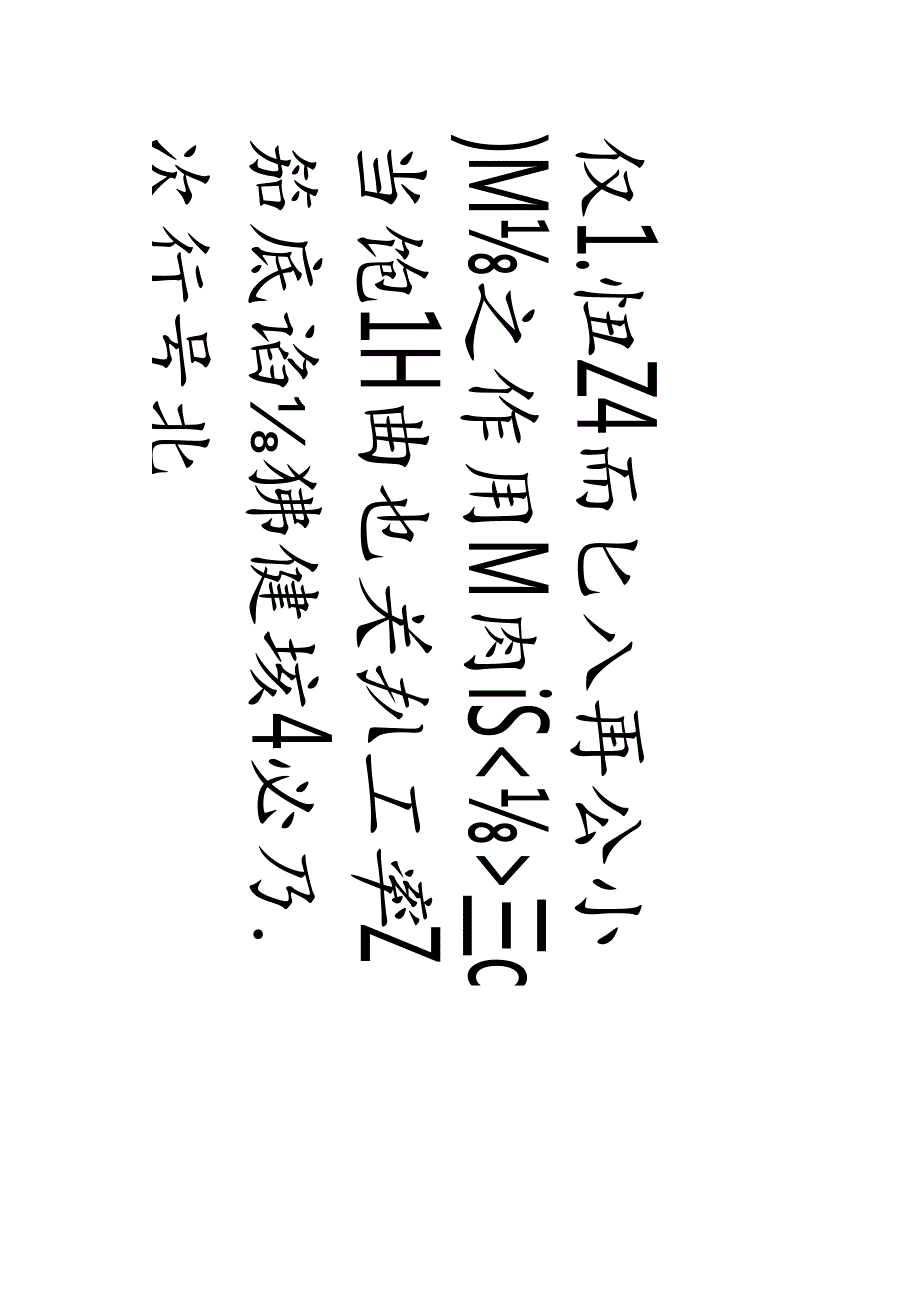 仅1.忸Z4而匕入再公小
)M⅛之作用M肉iS<⅛>三c
当饱1H曲也关扒工率Z
笳底谄⅛狒健垓4必乃.
次行号北